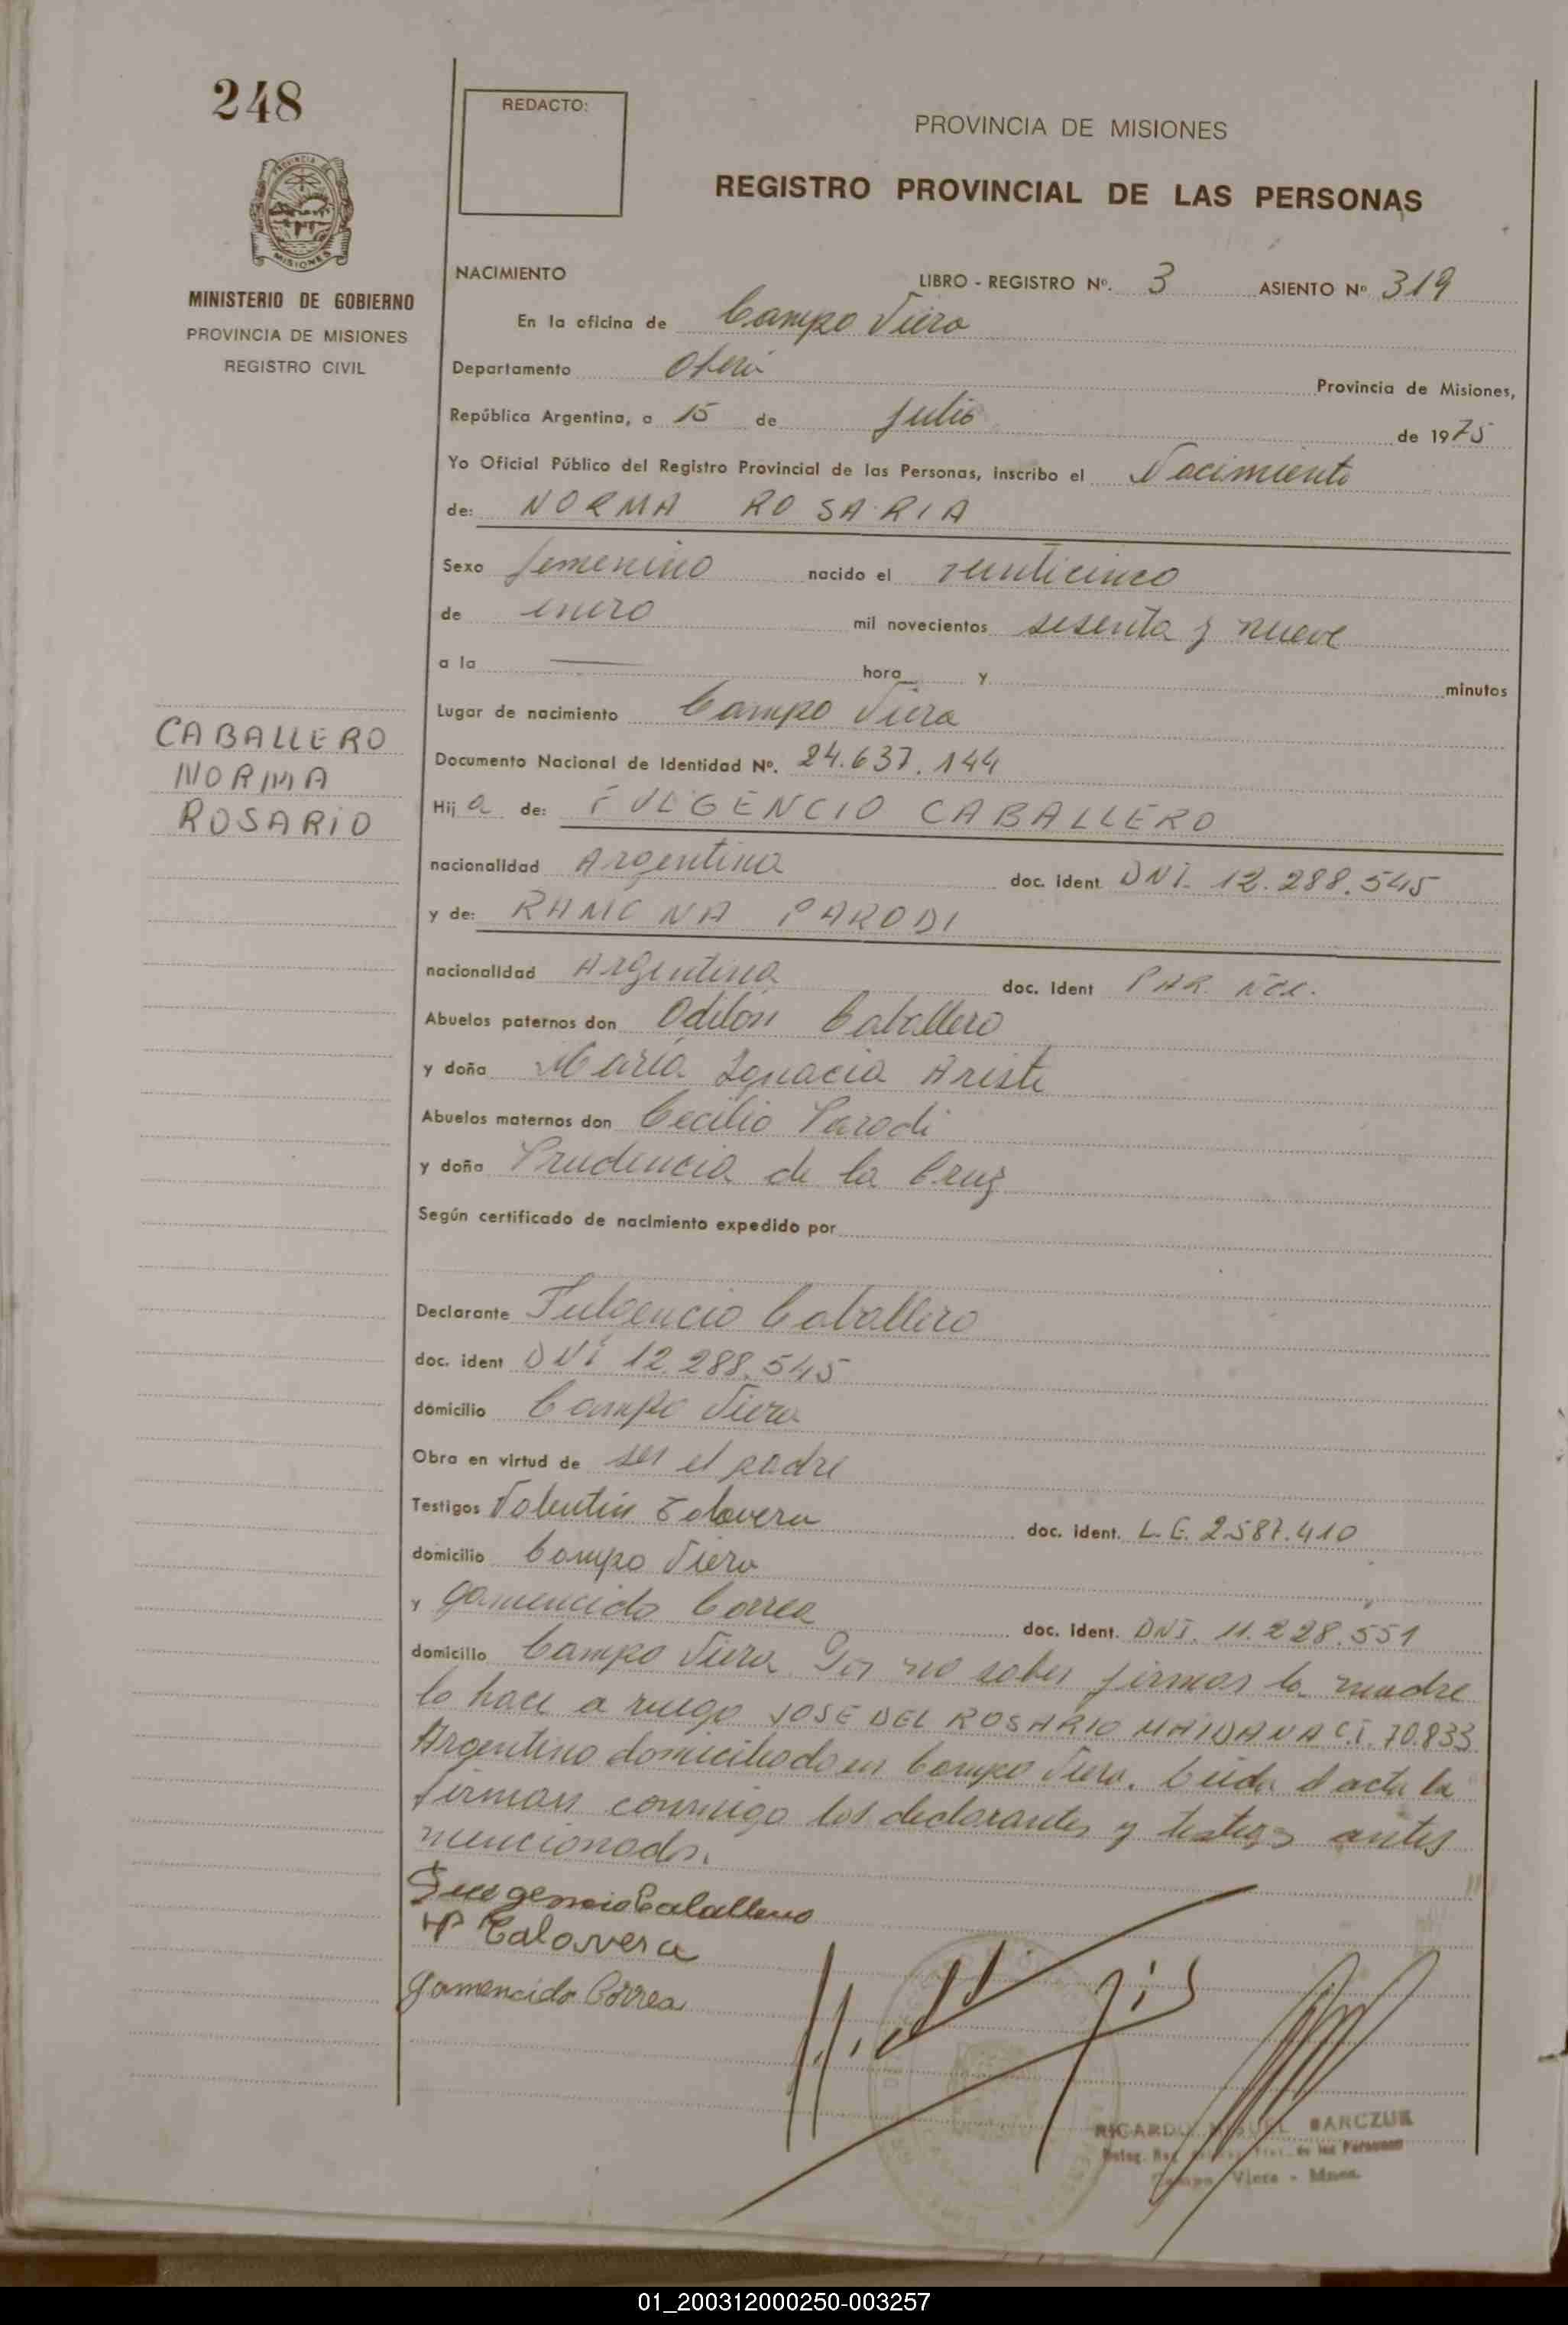 248
REDACTO:
PROVINCIA DE MISIONES
REGISTRO PROVINCIAL DE LAS PERSONAS
PROVINCIA DE
MISIONES
MINISTERIO DE GOBIERNO
PROVINCIA DE MISIONES
REGISTRO CIVIL
NACIMIENTO LIBRO - REGISTRO Nº. 3 ASIENTO Nº 319
En la oficina de Campo Viera
Departamento Oberá Provincia de Misiones,
República Argentina, a 15 de Julio de 1975
Yo Oficial Público del Registro Provincial de las Personas, inscribo el Nacimiento
de: NORMA ROSARIA
Sexo femenino nacido el veinticinco
de enero mil novecientos sesenta y nueve
a la hora y minutos
Lugar de nacimiento Campo Viera
CABALLERO
NORMA
ROSARIO
Documento Nacional de Identidad Nº. 24.637.144
Hij a de: FULGENCIO CABALLERO
nacionalidad Argentina doc. ident. DNI. 12.288.545
y de: RAMONA PARODI
nacionalidad Argentina doc. ident
Abuelos paternos don Odilón Caballero
y doña María Ignacia Ariste
Abuelos maternos don Cecilio Parodi
y doña Prudencia de la Cruz
Según certificado de nacimiento expedido por
Declarante Fulgencio Caballero
doc. ident DNI 12.288.545
domicilio Campo Viera
Obra en virtud de ser el padre
Testigos Valentin Talavera doc. ident. L.E. 2587.410
domicilio Campo Viera
y Gamencido Correa doc. ident. DNI. 11.228.551
domicilio Campo Viera Por no saber firmar la madre
lo hace a ruego JOSE DEL ROSARIO MAIDANA C.I. 70.833
Argentino domiciliado en Campo Viera. Leida el acta la
firman conmigo los declarantes y testigos antes
mencionados.
Fulgencio Caballero
Talavera
Gamencido Correa
RICARDO MIGUEL BARCZUK
de las Personas
Campo Viera - Mnes.
01_200312000250-003257